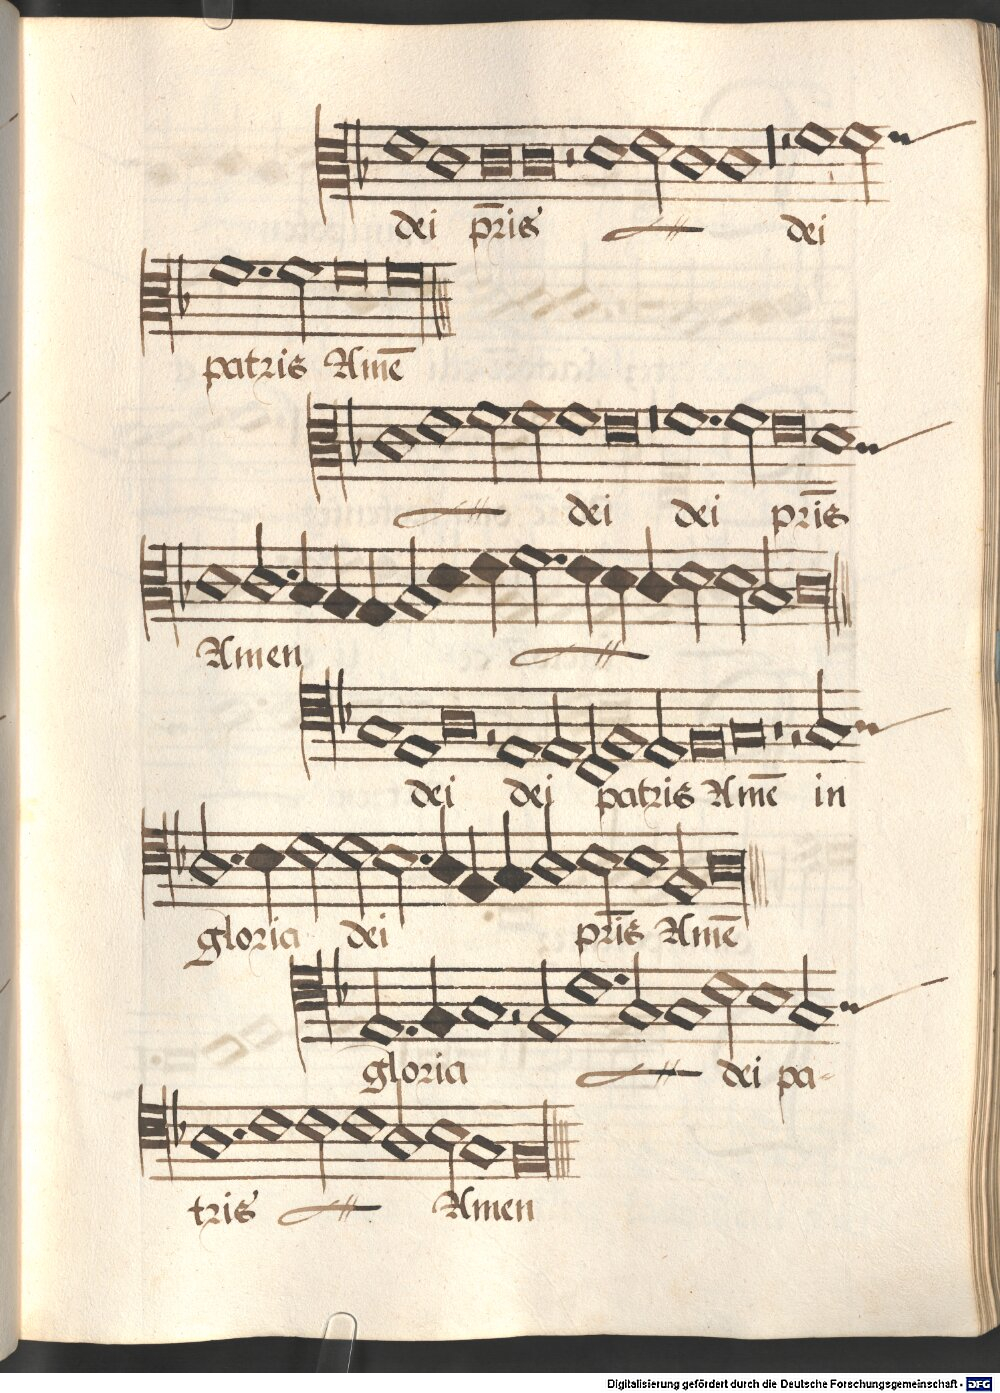 dei pr̄is dei
patris Amē
dei dei pr̄is
Amen
dei dei patris Amē in
gloria dei pr̄is Amē
gloria dei pa-
tris Amen
Digitalisierung gefördert durch die Deutsche Forschungsgemeinschaft - DFG